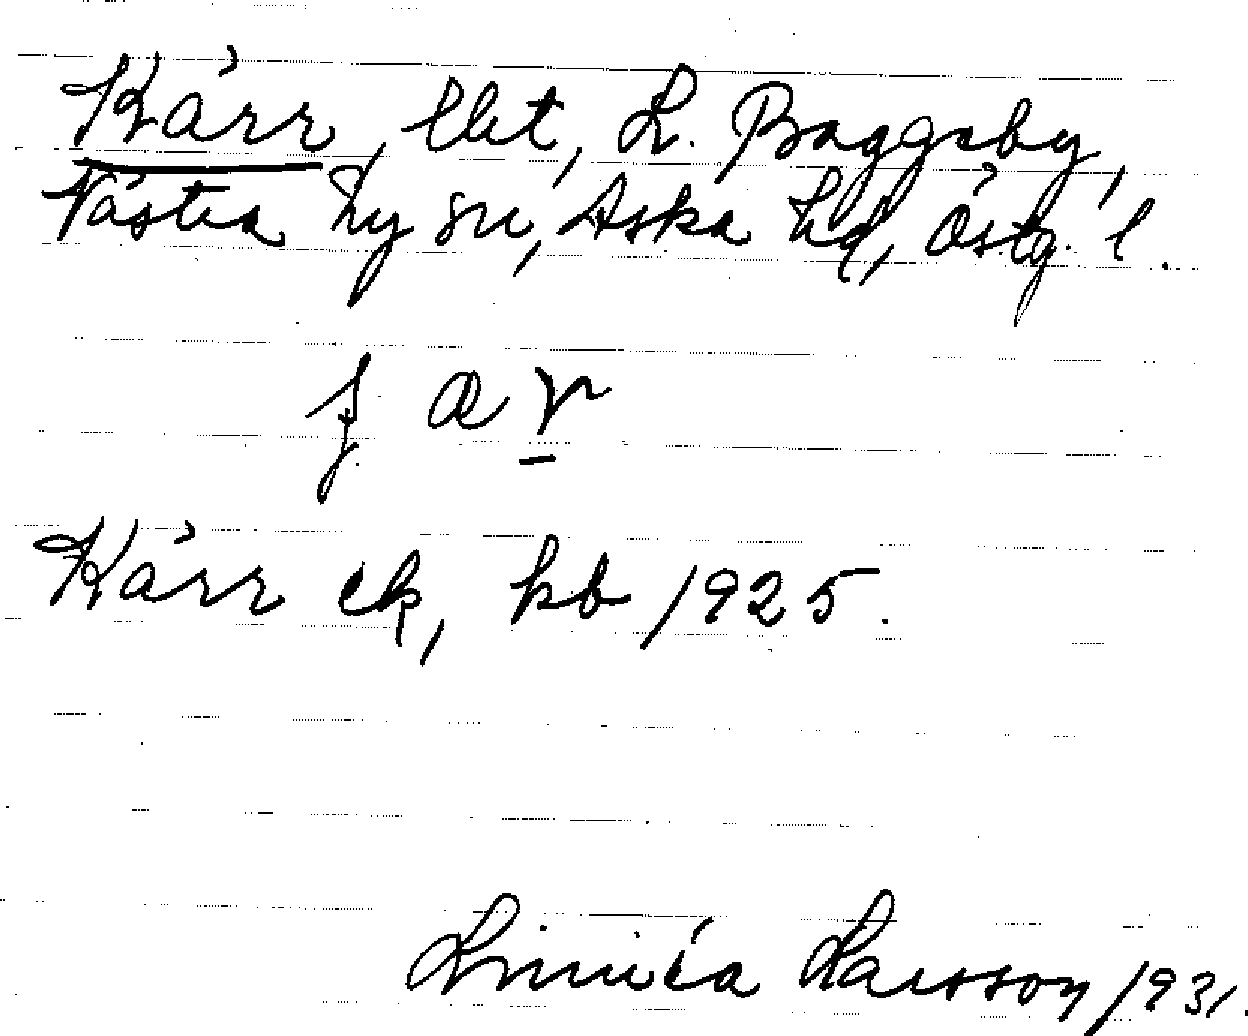 Kärr, lbt, L. Baggsby,
Västra Ny sn, Aska hd, Östg. l.
Kärr ek, kb 1925.
Linnéa Larsson 1931.